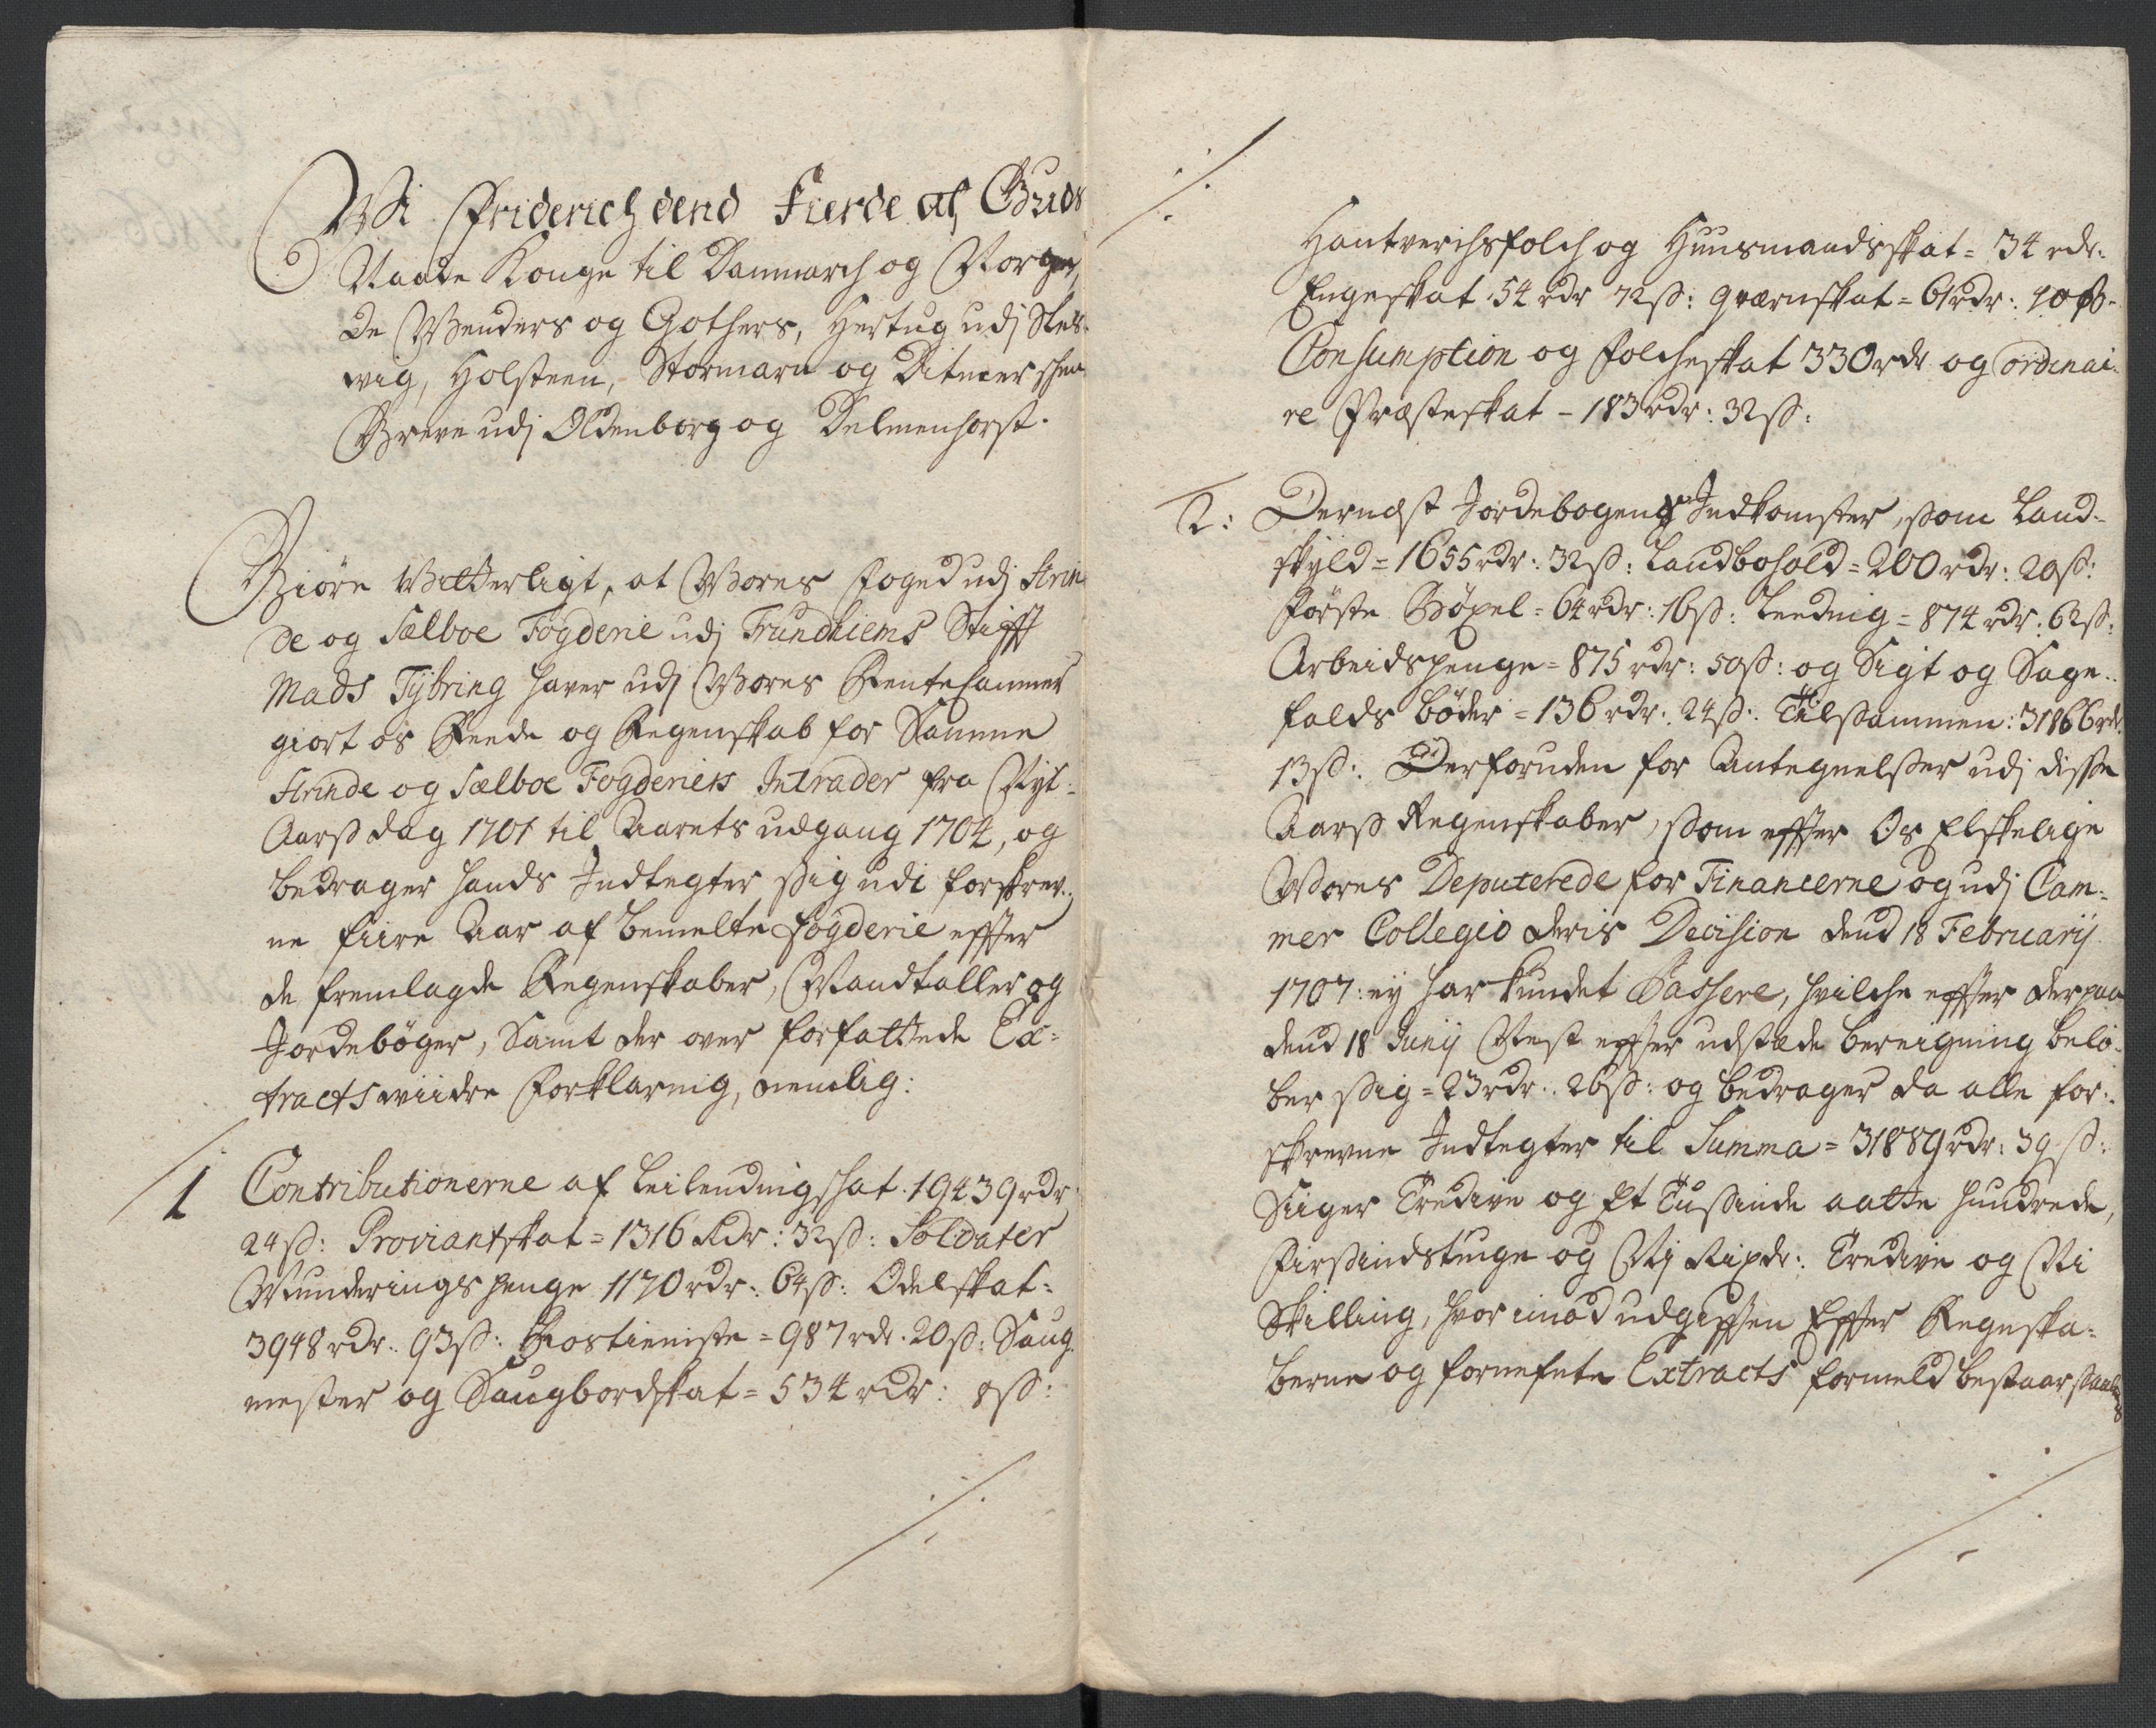 Wi Friderich dend Fierde af Guds
Naade Konge til Danmarch og Norge,
De Wenders og Gothers, Hertug udj Sles-
wig, Holsteen, Stormarn og Ditmerschen
Greve udj Oldenborg og Delmenhorst.
Giöre Witterligt, at Wores Foged udj Strin
de og Sælboe Fogderie udj Trundhiems Stifft
Mads Tybring haver udj Wores Rentekammer
giort os Reede og Regenskab for Samme
Strinde og Sælboe Fogderies Intrader fra Nyt-
Aarsdag 1701 til Aarets udgang 1704, og
bedrager hands Indtegter sig udi forskrev-
ne fiire Aar af bemelte Fogderie effter
de fremlagde Regenskaber, Mandtaller og
Jordebøger, Samt der over forfattede Ex-
tracts viidre Forklaring, nemlig:
1 Contributionerne af Leilendingschat. 19439 rdr
24 ß: Proviantskat = 1316 Rdr: 32 ß: Soldater
Munderings penge 1170 rdr: 64 ß: Odelskat-
3948 rdr: 93 ß: Rostieniste = 987 rdr. 20 ß: Saug
mester og Saugbordskat = 534 rdr: 8 ß:
./.
./.
Hantverchsfolch og Huusmandsskat = 34 rdr:
Engeskat 54 rdr 72 ß: qværnskat = 61 rdr: 40 ß.
Consumption og Folcheskat 330 rdr og ordinai-
re Præsteskat - 183 rdr: 32 ß:
2: Dernest Jordebogens Indkomster, som Land-
skyld = 1655 rdr: 32 ß: Landbohold = 200 rdr: 20 ß:
Förste Böxel = 64 rdr: 16 ß: Leeding = 874 rdr: 62 ß:
Arbeidspenge = 875 rdr: 50 ß: og Sigt og Sage-
falds bøder = 136 rdr: 24 ß: Tilsammen: 31866 rdr.
13 ß: Derforuden for Antegnelsser udj disse
Aars Regenskaber, som effter Os Elskelige
Wores Deputerede for Financerne og udj Cam-
mer Collegio deris Decision dend 18 Februarij
1707: ey har kundet Passere, hvilche effter derpaa
dend 18 Junij Nest effter udstæde bereigning belö-
ber sig = 23 rdr: 26 ß: og bedrager da alle for-
skrevne Indtegter til Summa = 31889 rdr: 39 ß:
Siiger Tredive og Et Tusinde aatte hundrede,
Firsindstuge og Nj Rixdr: Tredive og Ni
Skilling, hvor imod udgifften Effter Regenska-
berne og fornefnte Extracts formeld bestaar saaledes
./.